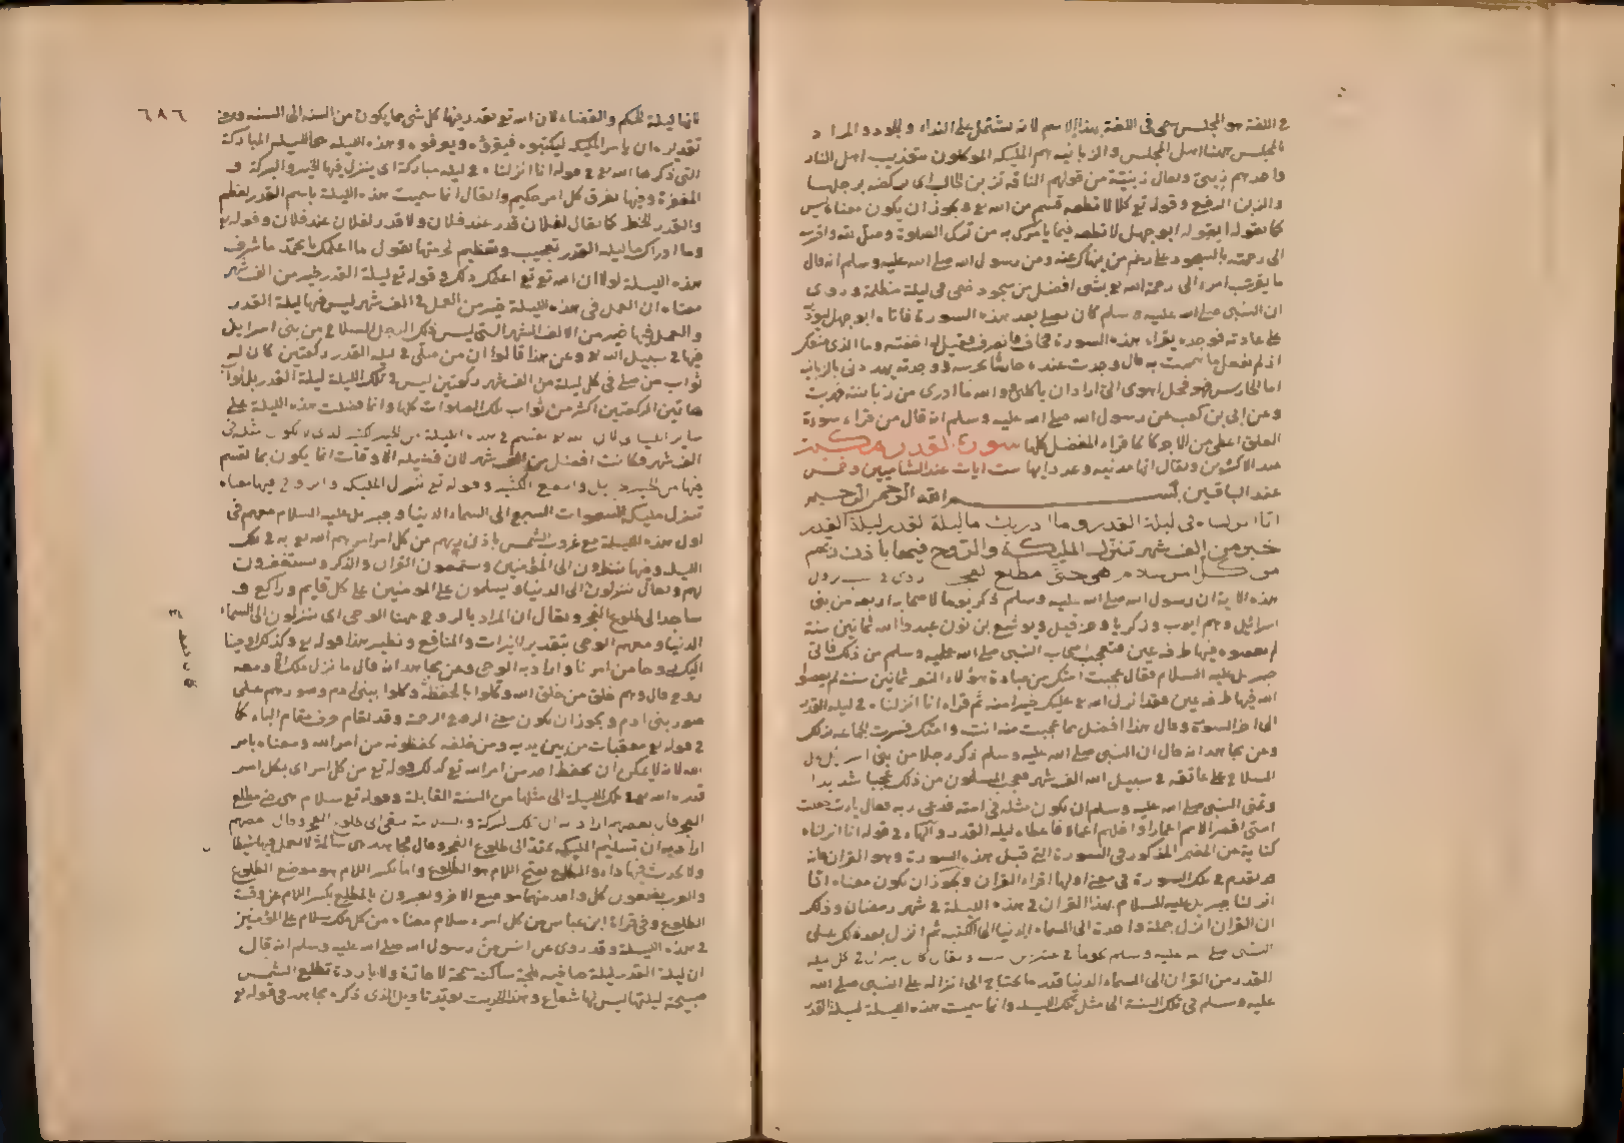 في اللغة هو المجلس سمي في اللغة بهذا الاسم لانه يشتمل على النداء والجود والمراد
بالمجلس ههنا اهل المجلس والزبانيه هم المليكه الموكلون بتعذيب اهل النار
واحدهم زبنى ويقال زبنية من قولهم الناقه تزبن الحالب اي تركضه برجلها
والزبن الدفع وقوله تع كلا لا تطعه قسم من الله تع ويجوز ان يكون معناه ليس
كما يقوله ابو جهل لا تطعه فيما يامرك به من ترك الصلوة وصل لله واقرب
الى رحمته بالسجود على رغم من ينهاك عنه وعن رسول الله صلى الله عليه وسلم انه قال
ما يقرب امرء الى رحمة الله تع بشى افضل من سجود خفي في ليلة مظلمة وروى
ان النبي صلى الله عليه وسلم كان يصلي بعد هذه السورة فاتاه ابو جهل ليوذيه
على عادته فوجده يقراء هذه السورة فخاف فانصرف فقيل له اخفته وما الذي منعك
ان لم تفعل ما هممت به قال وجدت عنده حارسا يحرسه ووجدته يهددني بالزبانيه
اما الحارس فهو فحل اهوى الي اراد ان ياكلني والله ما ادري من زبانيته فهربت
وعن ابي بن كعب عن رسول الله صلى الله عليه وسلم انه قال من قراء سورة
العلق اعطي من الاجر كانما قراء المفصل كلها سورة القدر مكية
عند الاكثرين ويقال انها مدنيه وعدد ايها ست ايات عند الشاميين وخمس
عند الباقين بسم الله الرحمن الرحيم
انا انزلناه في ليلة القدر وما ادريك ما ليلة القدر ليلة القدر
خير من الف شهر تنزل المليكة والروح فيها باذن ربهم
من كل امر سلام هي حتى مطلع الفجر روي في سبب نزول
هذه الاية ان رسول الله صلى الله عليه وسلم ذكر يوما لاصحابه اربعه من بني
اسرائيل وهم ايوب وزكريا وحزقيل ويوشع بن نون عبدوا الله ثمانين سنة
لم يعصوه فيها طرفه عين فتعجب اصحاب النبي صلى الله عليه وسلم من ذلك فاتى
جبريل عليه السلام فقال عجبت امتك من عبادة هؤلاء النفر ثمانين سنة لم يعصوا
الله فيها طرفه عين فقد انزل الله تع عليك خيرا منه ثم قراء انا انزلناه في ليلة القدر
الى اخر السورة وقال هذا افضل مما عجبت منه انت وامتك فسرت بجماعه بذلك
وعن مجاهد انه قال ان النبي صلى الله عليه وسلم ذكر رجلا من بني اسرائيل حمل
السلاح على عاتقه في سبيل الله الف شهر فعجب المسلمون من ذلك عجبا شديدا
وتمنى النبي صلى الله عليه وسلم ان يكون مثله في امته فدعى ربه فقال يا رب جعلت
امتي اقصر الامم اعمارا واقلهم اعمالا فاعطاه ليله القدر والهاء في قوله انا انزلناه
كناية من الضمير المذكور في السورة التي قبل هذه السورة وهو القران فانه
قد تقدم في تلك السورة في معنى اولها اقراء القران ويجوز ان يكون معناه انا
انزلنا جبريل عليه السلام بهذا القران في هذه الليلة في شهر رمضان وذلك
ان القران انزل جملة واحدة الى السماء الدنيا الى الكتبه ثم انزل بعد ذلك على
النبي صلى الله عليه وسلم نجوما في عشرين سنه ويقال كان ينزل في كل ليله
القدر من القران الى السماء الدنيا قدر ما يحتاج الى انزاله على النبي صلى الله
عليه وسلم في تلك السنة الى مثل تلك الليله وانما سميت هذه الليلة ليلة القدر
٦٨٦
لانها ليلة الحكم والقضاء لان الله تع يقدر فيها كل شي مما يكون من السنه الى السنه
تقديره ان يامر المليكه ليكتبوه وهذه الليله هي الليله المباركة
التي ذكرها الله تع في قوله انا انزلناه في ليله مباركة اي ينزل فيها الخير والبركة و
المغفرة وفيها يفرق كل امر حكيم ويقال انما سميت هذه الليلة باسم القدر لعظم
والقدر الخطر كما يقال لفلان قدر عند فلان ولا قدر لفلان عند فلان وقوله تع
وما ادراك ما ليله القدر تعجيب وتعظيم لحرمتها يقول ما اعلمك يا محمد ما شرف
هذه الليلة لولا ان الله تع اعلمك ذلك وقوله تع ليلة القدر خير من الف شهر
معناه ان العمل في هذه الليلة خير من العمل في الف شهر ليس فيها ليلة القدر
والعمل فيها خير من الالف الشهر التي لبس ذلك الرجل السلاح من بني اسرايل
فيها في سبيل الله تع وعن هذا قالوا ان من صلى في ليله القدر ركعتين كان له
ثواب من صلى في كل ليلة من الف شهر ركعتين ليس في تلك الليلة ليلة القدر بل ثواب
هاتين الركعتين اكثر من ثواب تلك الصلوات كلها وانما فضلت هذه الليلة على
ساير الليالي لان الله تع يقسم في هذه الليلة من الخير الكثير الذي لا يكون مثله في
الف شهر فكانت افضل من الف شهر لان فضيلة الاوقات انما يكون بما يقسم
فيها من الخير وقوله تع تنزل المليكه والروح فيها معناه
تنزل مليكة السموات السبع الى السماء الدنيا وجبريل عليه السلام معهم في
اول هذه الليلة مع غروب الشمس باذن ربهم من كل امر امرهم الله تع به في تلك
الليله وفيها ينظرون الى المؤمنين ويستمعون القران والذكر ويستغفرون
لهم ويقال ينزلون الى الدنيا ويسلمون على المومنين على كل قايم وراكع و
ساجد الى طلوع الفجر ويقال ان المراد بالروح ههنا الوحي اي ينزلون الى السماء
الدنيا ومعهم الوحي بتقدير الخيرات والمنافع ونظير هذا قوله تع وكذلك اوحينا
اليك روحا من امرنا واراد به الوحي وعن مجاهد انه قال ما نزل ملك الا ومعه
روح قال وهم خلق من خلق الله وكلوا بالحفظة وكلوا ببني ادم وصورهم على
صور بني ادم ويجوز ان يكون معنى الروح الرحمة وقد يقام حرف مقام الباء كما
في قوله تع معقبات من بين يديه ومن خلفه يحفظونه من امر الله ومعناه بامر
الله لانه لا يمكن ان يحفظ احد من امر الله تع كذلك قوله تع من كل امر اي بكل امر
قدره الله تع في تلك الليلة الى مثلها من السنة القابلة وقوله تع سلام هي حتى مطلع
الفجر قال بعضهم اراد به ان تلك البركة والسلامة تبقى الى طلوع الفجر وقال بعضهم
اراد به ان تسليم المليكه يمتد الى طلوع الفجر وقال مجاهد هي سالمة لا يعمل فيها شيطان
ولا يحدث فيها داء والمطلع بفتح اللام هو الطلوع واما بكسر اللام هو موضع الطلوع
والعرب يضعون كل واحد منهما موضع الاخر ويعبرون بالمطلع بكسر اللام عن وقت
الطلوع وفي قراءة ابن عباس من كل امرء سلام معناه من كل ملك سلام على المؤمنين
في هذه الليلة وقد روى عن انس عن رسول الله صلى الله عليه وسلم انه قال
ان ليلة القدر ليلة صافيه بلجة ساكنة سمحة لا حارة ولا باردة تطلع الشمس
صبيحة ليلتها ليس لها شعاع وهذا الحديث يؤيد تاويل الذي ذكره مجاهد في قوله تع